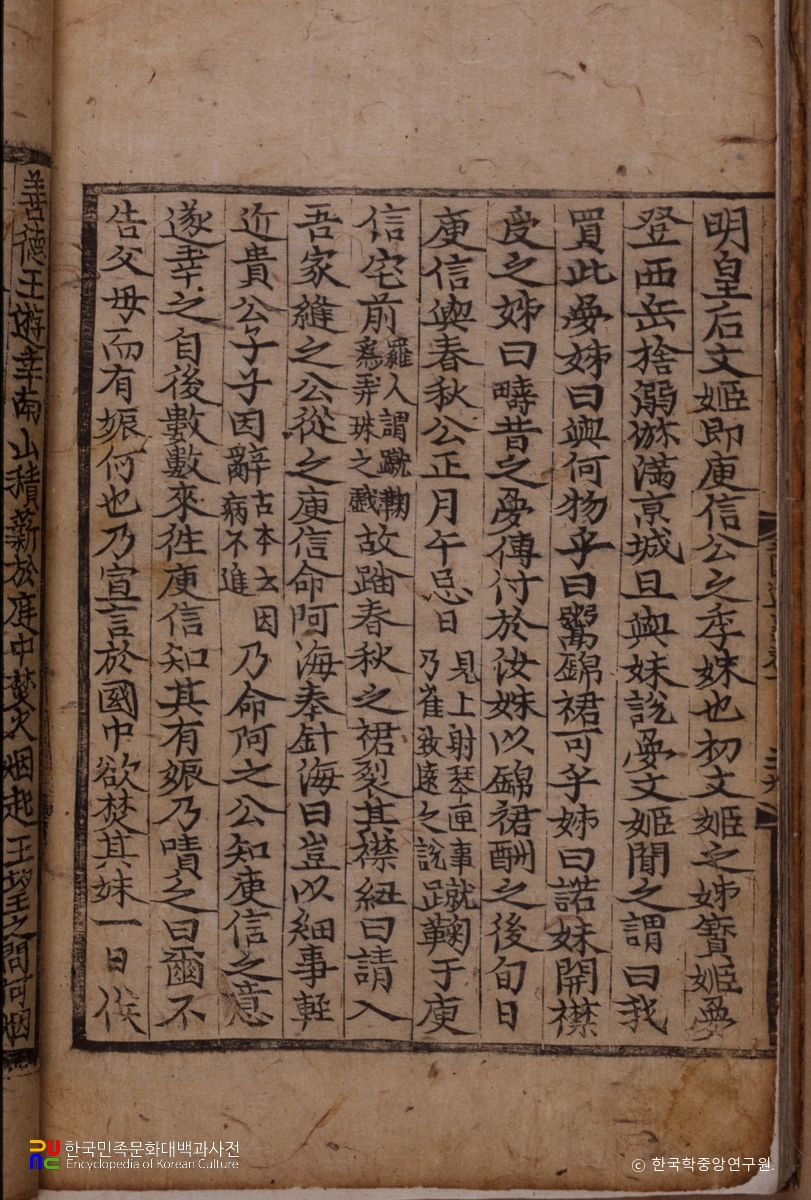 明皇后文姬即庾信公之季妹也初文姬之姊寶姬夢
登西岳捨溺瀰滿京城旦與妹說夢文姬聞之謂曰我
買此夢姊曰與何物乎曰鬻錦裙可乎姊曰諾妹開襟
受之姊曰疇昔之夢傳付於汝妹以錦裙酬之後旬日
庾信與春秋公正月午忌日見上射琴匣事乃崔致遠之說蹴鞠于庾
信宅前羅人謂蹴鞠爲弄珠之戲故踏春秋之裙裂其襟紐曰請入
吾家縫之公從之庾信命阿海奉針海曰豈以細事輕
近貴公子乎因辭古本云因病不進乃命阿之公知庾信之意
遂幸之自後數數來徃庾信知其有娠乃嘖之曰爾不
告父母而有娠何也乃宣言於國中欲焚其妹一日俟
善德王遊幸南山積薪於庭中焚火烟起王望之問何烟
한국민족문화대백과사전
Encyclopedia of Korean Culture
ⓒ 한국학중앙연구원.